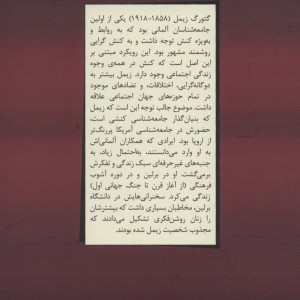 گئورگ زیمل (۱۸۵۸-۱۹۱۸) یکی از اولین
جامعه‌شناسان آلمانی بود که به روابط و
به‌ویژه کنش توجه داشت و به کنش گرایی
روشمند مشهور بود. این رویکرد مبتنی بر
این اصل است که کنش در همه‌ی وجوه
زندگی اجتماعی وجود دارد. زیمل بیشتر به
دوگانه‌گرایی، اختلافات، و تضادهای موجود
در تمام حوزه‌های جهان اجتماعی علاقه
داشت. موضوع جالب توجه این است که زیمل
که بنیان‌گذار جامعه‌شناسی کنشی است،
حضورش در جامعه‌شناسی آمریکا پررنگ‌تر
از اروپا بود. ایرادی که همکاران آلمانی‌اش
به او وارد می‌دانستند، به‌احتمال زیاد، به
جنبه‌های غیرحرفه‌ای سبک زندگی و تفکرش
برمی‌گشت. او در برلین و در دوره آشوب
فرهنگی (از آغاز قرن تا جنگ جهانی اول)
زندگی می‌کرد. سخنرانی‌هایش در دانشگاه
برلین، مخاطبان بسیاری داشت که بیشترشان
را زنان روشن‌فکری تشکیل می‌دادند که
مجذوب شخصیت زیمل شده بودند.